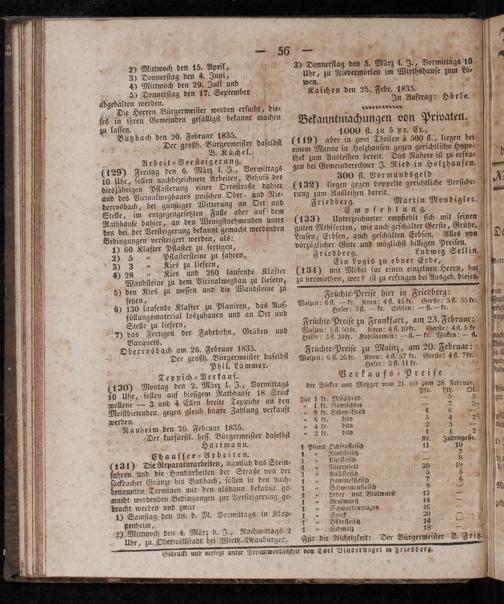 — 56 —
2) Mittwoch den 15. April,
3) Donnerstag den 4. Juni,
4) Mittwoch den 29. Juli und
5) Donnerstag den 17. September
abgehalten werden.
Die Herren Bürgermeister werden ersucht, die-
ses in ihren Gemeinden gefälligst bekannt machen
zu lassen.
Butzbach den 20. Februar 1835.
Der großh. Bürgermeister daselbst
B. Küchel.
Arbeits-Versteigerung.
(129) Freitag den 6. März l. J., Vormittags
10 Uhr, sollen nachbezeichnete Arbeiten, Behufs der
diesjährigen Pflästerung einer Ortsstraße dahier
und des Vicinalwegbaues zwischen Ober- und Nie-
derrosbach, bei günstiger Witterung an Ort und
Stelle, im entgegengesetzten Falle aber auf dem
Rathhause dahier, an den Wenigstnehmenden unter
den bei der Versteigerung bekannt gemacht werdenden
Bedingungen versteigert werden, als:
1) 60 Klafter Pflaster zu fertigen,
2) 5 „ Pflastersteine zu fahren,
3) 3 „ Kies zu liefern,
4) 28 „ Kies und 260 laufende Klafter
Wandsteine zu dem Vicinalwegbau zu liefern,
5) den Kies zu werfen und die Wandsteine zu
setzen,
6) 130 laufende Klafter zu Planiren, das Auf-
füllungsmaterial loszuhauen und an Ort und
Stelle zu liefern,
7) das Fertigen der Fahrbahn, Gräben und
Banquets.
Oberrosbach am 26. Februar 1835.
Der großh. Bürgermeister daselbst
Phil. Lämmer.
Teppich-Verkauf.
(130) Montag den 2. März l. J., Vormittags
10 Uhr, sollen auf hiesigem Rathhause 18 Stück
wollene — 3 und 4 Ellen breite Teppiche an den
Meistbietenden gegen gleich baare Zahlung verkauft
werden.
Nauheim den 26. Februar 1835.
Der kurfürstl. hess. Bürgermeister daselbst
Hartmann.
Chaussee-Arbeiten.
(131) Die Reparaturarbeiten, nämlich das Stein-
fahren und die Handarbeiten der Straße von der
Butzbach, sollen in den nach-
benannten Terminen mit den alsdann bekannt ge-
macht werdenden Bedingungen zur Versteigerung ge-
bracht werden und zwar
1) Samstag den 28. d. M. Vormittags in Klop-
penheim,
2) Mittwoch den 4. März d. J., Nachmittags 2
Uhr, zu Oberwöllstadt bei Wirth Brauburger,
3) Donnerstag den 5. März l. J., Vormittags 10
Uhr, zu Niedermörlen im Wirthshause zum Lö-
wen.
Kaichen den 25. Febr. 1835.
In Auftrag: Hörle.
Bekanntmachungen von Privaten.
1000 fl. zu 5 pr. Ct.,
(119) aber in zwei Theilen à 500 fl., liegen bei
einem Manne in Holzhausen gegen gerichtliche Hypo-
thek zum Ausleihen bereit. Das Nähere ist zu erfra-
gen bei Gemeinderechner J. Ried in Holzhausen.
300 fl. Vormundsgeld
(132) liegen gegen doppelte gerichtliche Versiche-
rung zum Ausleihen bereit.
Friedberg. Martin Mondigler.
Empfehlung.
(133) Unterzeichneter empfiehlt sich mit seinen
guten Mehlsorten, wie auch geschälter Gerste, Grütze,
Linsen, Erbsen, auch geschälten Erbsen. Alles von
vorzüglicher Güte und möglichst billigen Preisen.
Friedberg. Ludwig Sellin.
Ein Logis zu ebner Erde,
(134) mit Möbel für einen einzelnen Herrn, hat
zu vermiethen, wer? ist zu erfragen bei Ausgeb. dieses.
Früchte-Preise hier in Friedberg:
Waizen: 6 fl. — kr. Korn: 4 fl. 45 kr. Gerste: 3 fl. 55 kr.
Hafer: 3 fl. — kr. Erbsen: — fl. — kr.
Früchte-Preise zu Frankfurt, am 23. Februar:
Waizen: 5 fl. 50 kr. Korn: 4 fl. 10 kr. Gerste: 4 fl. 5 kr
Hafer: 3 fl. 30 kr. — fl. — kr. Wicken: — fl. — kr.
Früchte-Preise zu Mainz, am 20. Februar:
Waizen: 6 fl. 26 kr. Korn: 4 fl. 57 kr. Gerste: 4 fl. 7 kr.
Hafer: 3 fl. 11 kr.
Verkaufs-Preise
der Bäcker und Metzger vom 21. bis zum 28. Februar.
Pfd. Lth. Qt.
Für 1 kr. Milchbrod
„ 1 kr. Gemischtes
„ 8 kr. Laiben-Brod
„ 6 kr. dito
„ 4 kr. dito
„ 2 kr. dito
Kr. Judengasse.
1 Pfund Ochsenfleisch 11 10
1 „ Rindfleisch
1 „ Kuhfleisch
1 „ Nierenfett 20 19
1 „ Kalbfleisch
1 „ Hammelfleisch
1 „ Schweinefleisch
1 „ Leber- und Blutwurst 12
1 „ Bratwurst 14
1 „ Schwartenmagen 16
1 „ Speck 20
1 „ Dörrfleisch 14
1 „ Schmalz 18
Für die Richtigkeit: Der Bürgermeister D. Fritz
Gedruckt und verlegt unter Verantwortlichkeit von Carl Bindernagel in Friedberg.